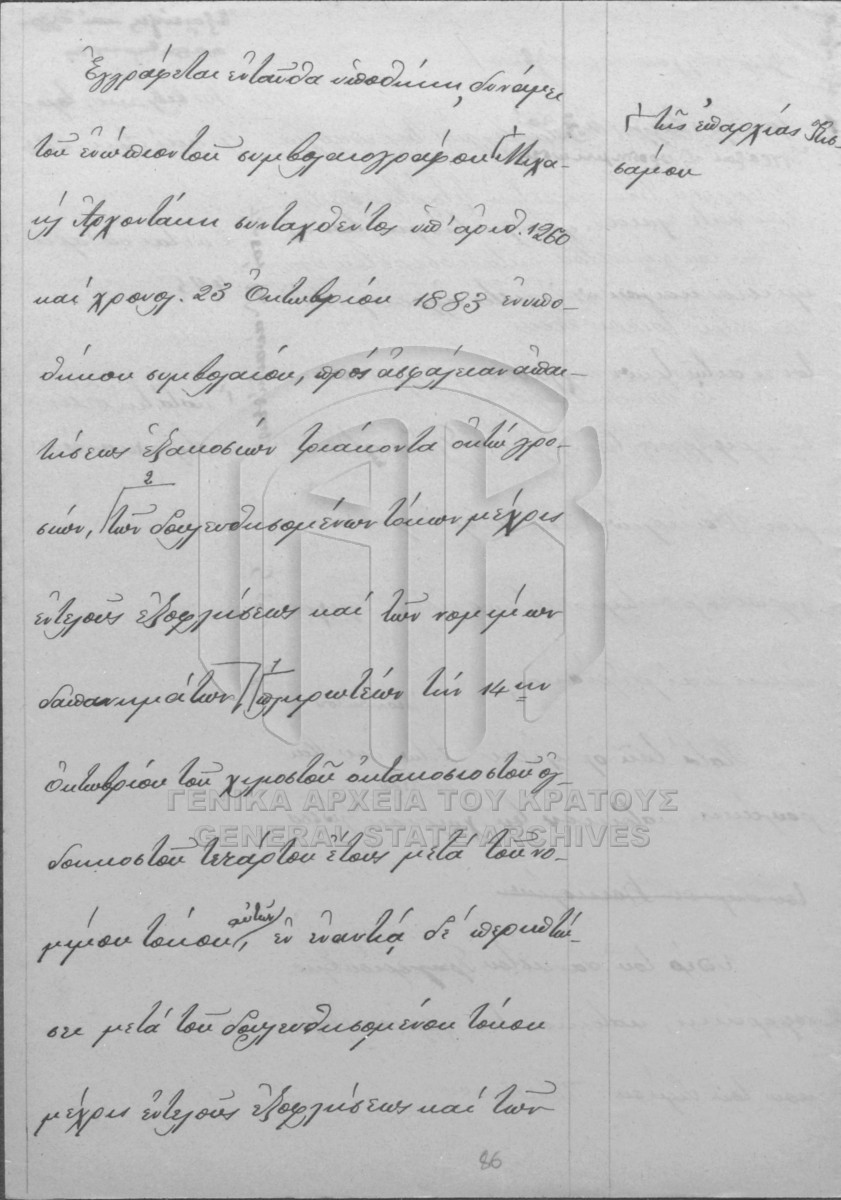 Ἐγγράφεται ἐνταῦθα ὑποθήκη, δυνάμει
τοῦ ἐνώπιον τοῦ συμβολαιογράφου Μιχα-
ὴλ Ἀρχοντάκη συνταχθέντος ὑπ' ἀριθ. 1260
καὶ χρονολ. 23 Ὀκτωβρίου 1883 ἐνυπο-
θήκου συμβολαίου, πρὸς ἀσφάλειαν ἀπαι-
τήσεως ἑξακοσίων τριάκοντα ὀκτὼ γρο-
σίων, 2 τῶν δουλευθησομένων τόκων μέχρις
ἐντελοῦς ἐξοφλήσεως καὶ τῶν νομίμων
δαπανημάτων, 1 πληρωτέων τὴν 14ην
Ὀκτωβρίου τοῦ χιλιοστοῦ ὀκτακοσιοστοῦ ὀγ-
δοηκοστοῦ τετάρτου ἔτους μετὰ τοῦ νο-
μίμου τόκου αὐτῶν, ἐν ἐναντίᾳ δὲ περιπτώ-
σει μετὰ τοῦ δουλευθησομένου τόκου
μέχρις ἐντελοῦς ἐξοφλήσεως καὶ τῶν
τῆς ἐπαρχίας Κισ-
σάμου
ΓΕΝΙΚΑ ΑΡΧΕΙΑ ΤΟΥ ΚΡΑΤΟΥΣ
GENERAL STATE ARCHIVES
86